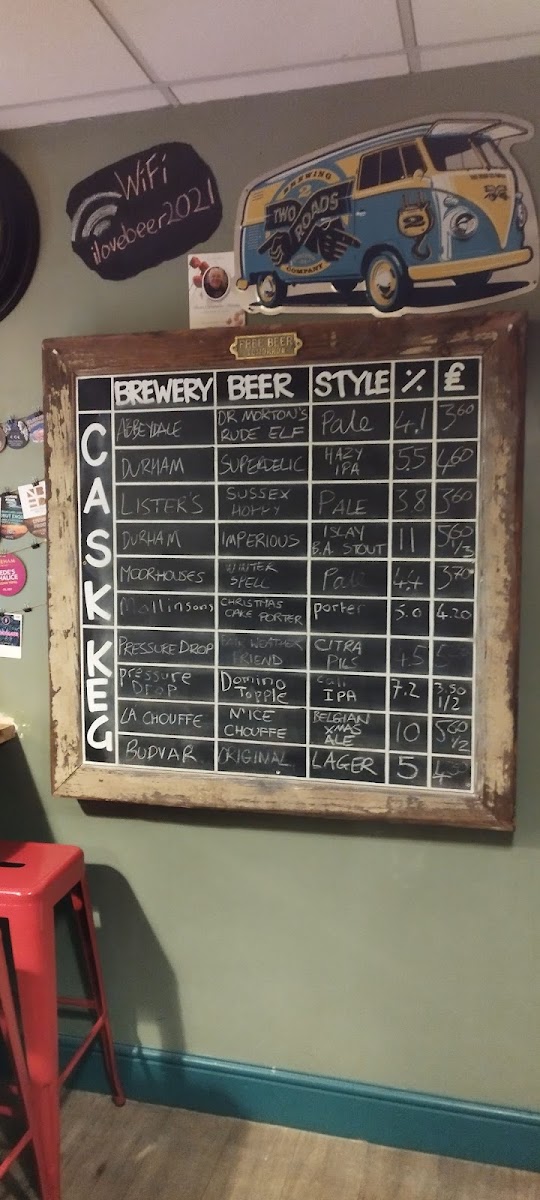 WiFi
ilovebeer2021
BREWING
2
TWO ROADS
COMPANY
2
FREE BEER
BREWERY BEER STYLE % £
CASK
ABBEYDALE DR MORTON'S RUDE ELF Pale 4.1 3.60
DURHAM SUPERDELIC HAZY IPA 5.5 4.60
LISTER'S SUSSEX HOPPY PALE 3.8 3.60
DURHAM IMPERIOUS ISLAY B.A. STOUT 11 5.60 1/3
MOORHOUSES WINTER SPELL Pale 4.4 3.70
Mallinsons CHRISTMAS CAKE PORTER porter 5.0 4.20
KEG
PRESSURE DROP FAIR WEATHER FRIEND CITRA PILS
pressure DROP Domino Topple Cali IPA 7.2 3.50 1/2
LA CHOUFFE N'ICE CHOUFFE BELGIAN XMAS ALE 10 5.60 1/2
BUDVAR ORIGINAL LAGER 5